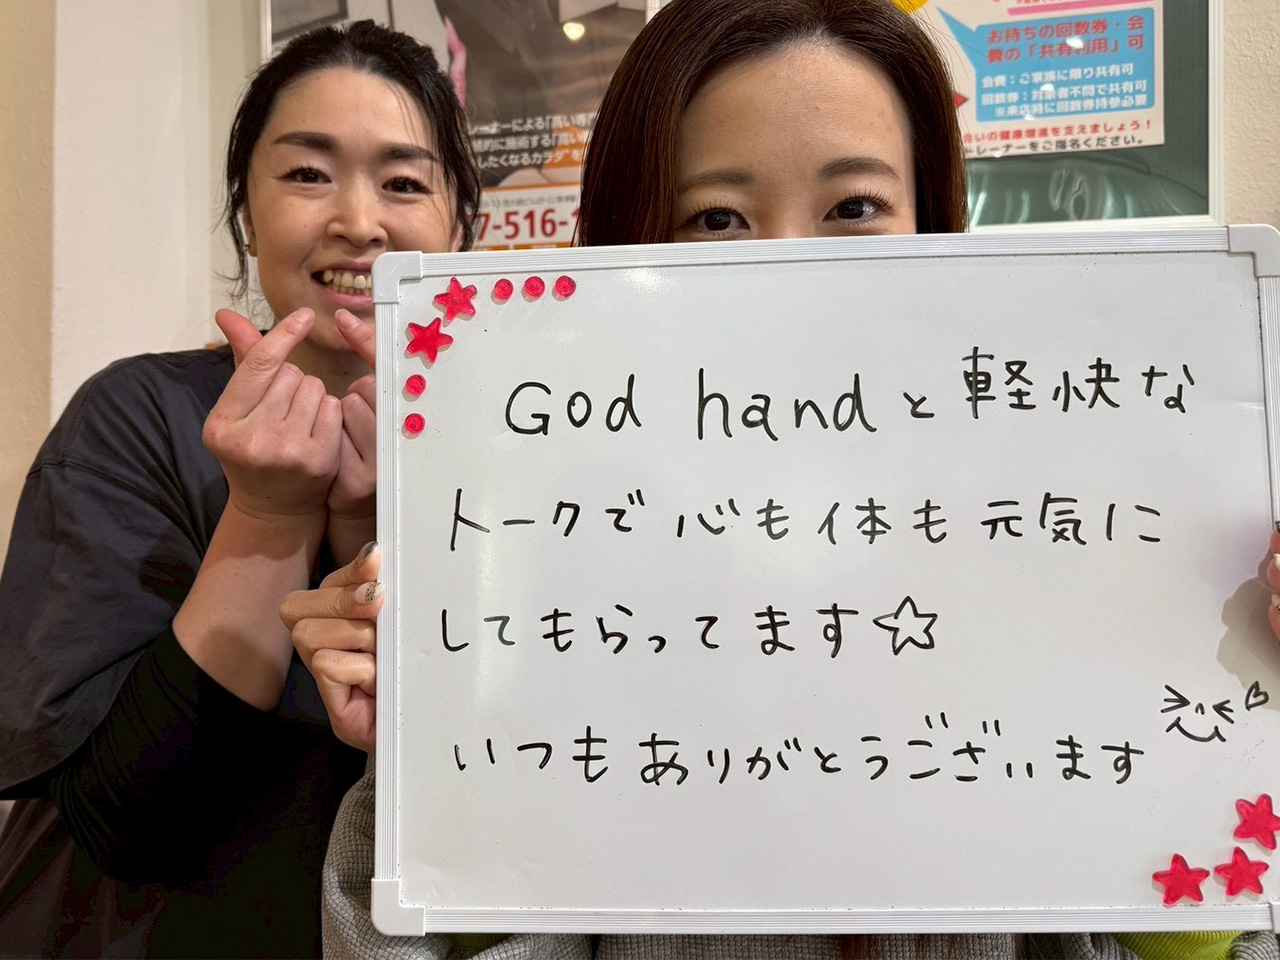 お持ちの回数券・会
費の「共有利用」可
会費：ご家族に限り共有可
回数券：対象者不問で共有可
※来店時に回数券持参必要
の健康増進を支えましょう！
トレーナーをご指名ください。
レーナーによる「高い専門
的に施術する「高い
したくなるカラダ"を
7-516-
God handと軽快な
トークで心も体も元気に
してもらってます☆
いつもありがとうございます